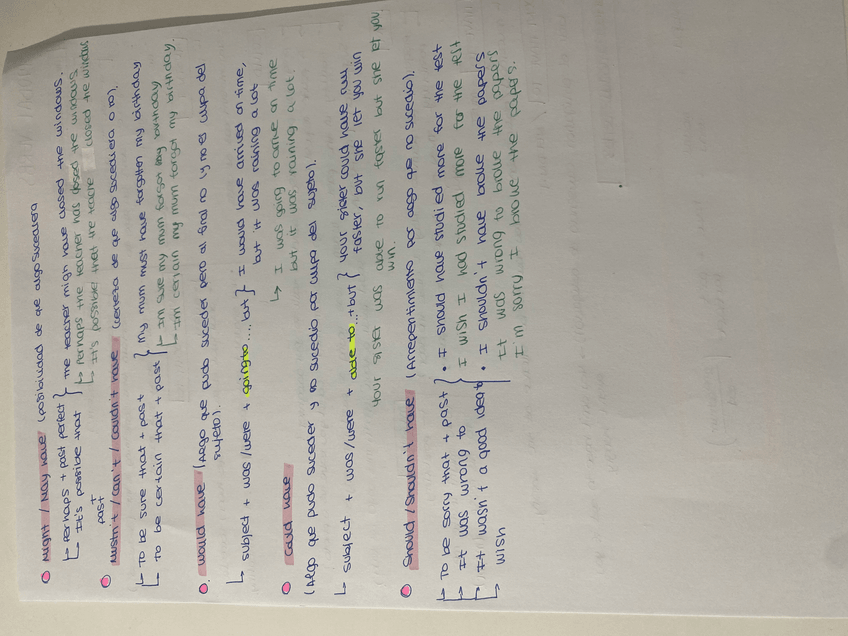 Might / May have (posibilidad de que algo sucediera
↳ Perhaps + past perfect } The teacher migh have closed the windows.
↳ It's possible that ↳ Perhaps the teacher has closed the windows.
+ past ↳ It's possible that the teacher closed the window
Mustn't / can't / couldn't have (certeza de que algo sucediera o no).
↳ To be sure that + past } My mum must have forgotten my birthday
↳ To be certain that + past ↳ Im sure my mum forgot my birthday
↳ Im certain my mum forgot my birthday.
Would have (Algo que pudo suceder pero al final no (y no es culpa del
sujeto).
↳ subject + was/were + going to ..., but } I would have arrived on time,
but it was raining a lot
↳ I was going to arrive on time
but it was raining a lot.
Could have
(Algo que pudo suceder y no sucedio por culpa del sujeto).
↳ subject + was/were + able to ... + but } Your sister could have run
faster, but she let you win
Your sister was able to run faster but she let you
win.
Should / Shouldn't have (Arrepentimiento por algo que no sucedio).
↳ To be sorry that + past } • I should have studied more for the test
↳ It was wrong to I wish I had studied more for the test
↳ It wasn't a good idea to • I shouldn't have broke the papers
↳ wish It was wrong to broke the papers
I'm sorry I broke the papers.